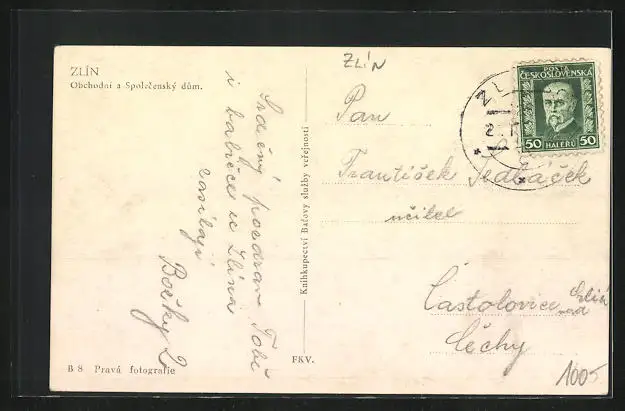 ZLÍN
Obchodní a Společenský dům.
ZLÍN
Srdečný pozdrav Tobě
i babičce ze Zlína
zasílají
Knihkupectví Baťovy služby veřejnosti
FKV.
B 8 Pravá fotografie
POSTA
ČESKOSLOVENSKÁ
50 HALÉŘŮ 50
ZL
Pan
František Sedláček
učitel
Častolovice nad
Čechy
1005